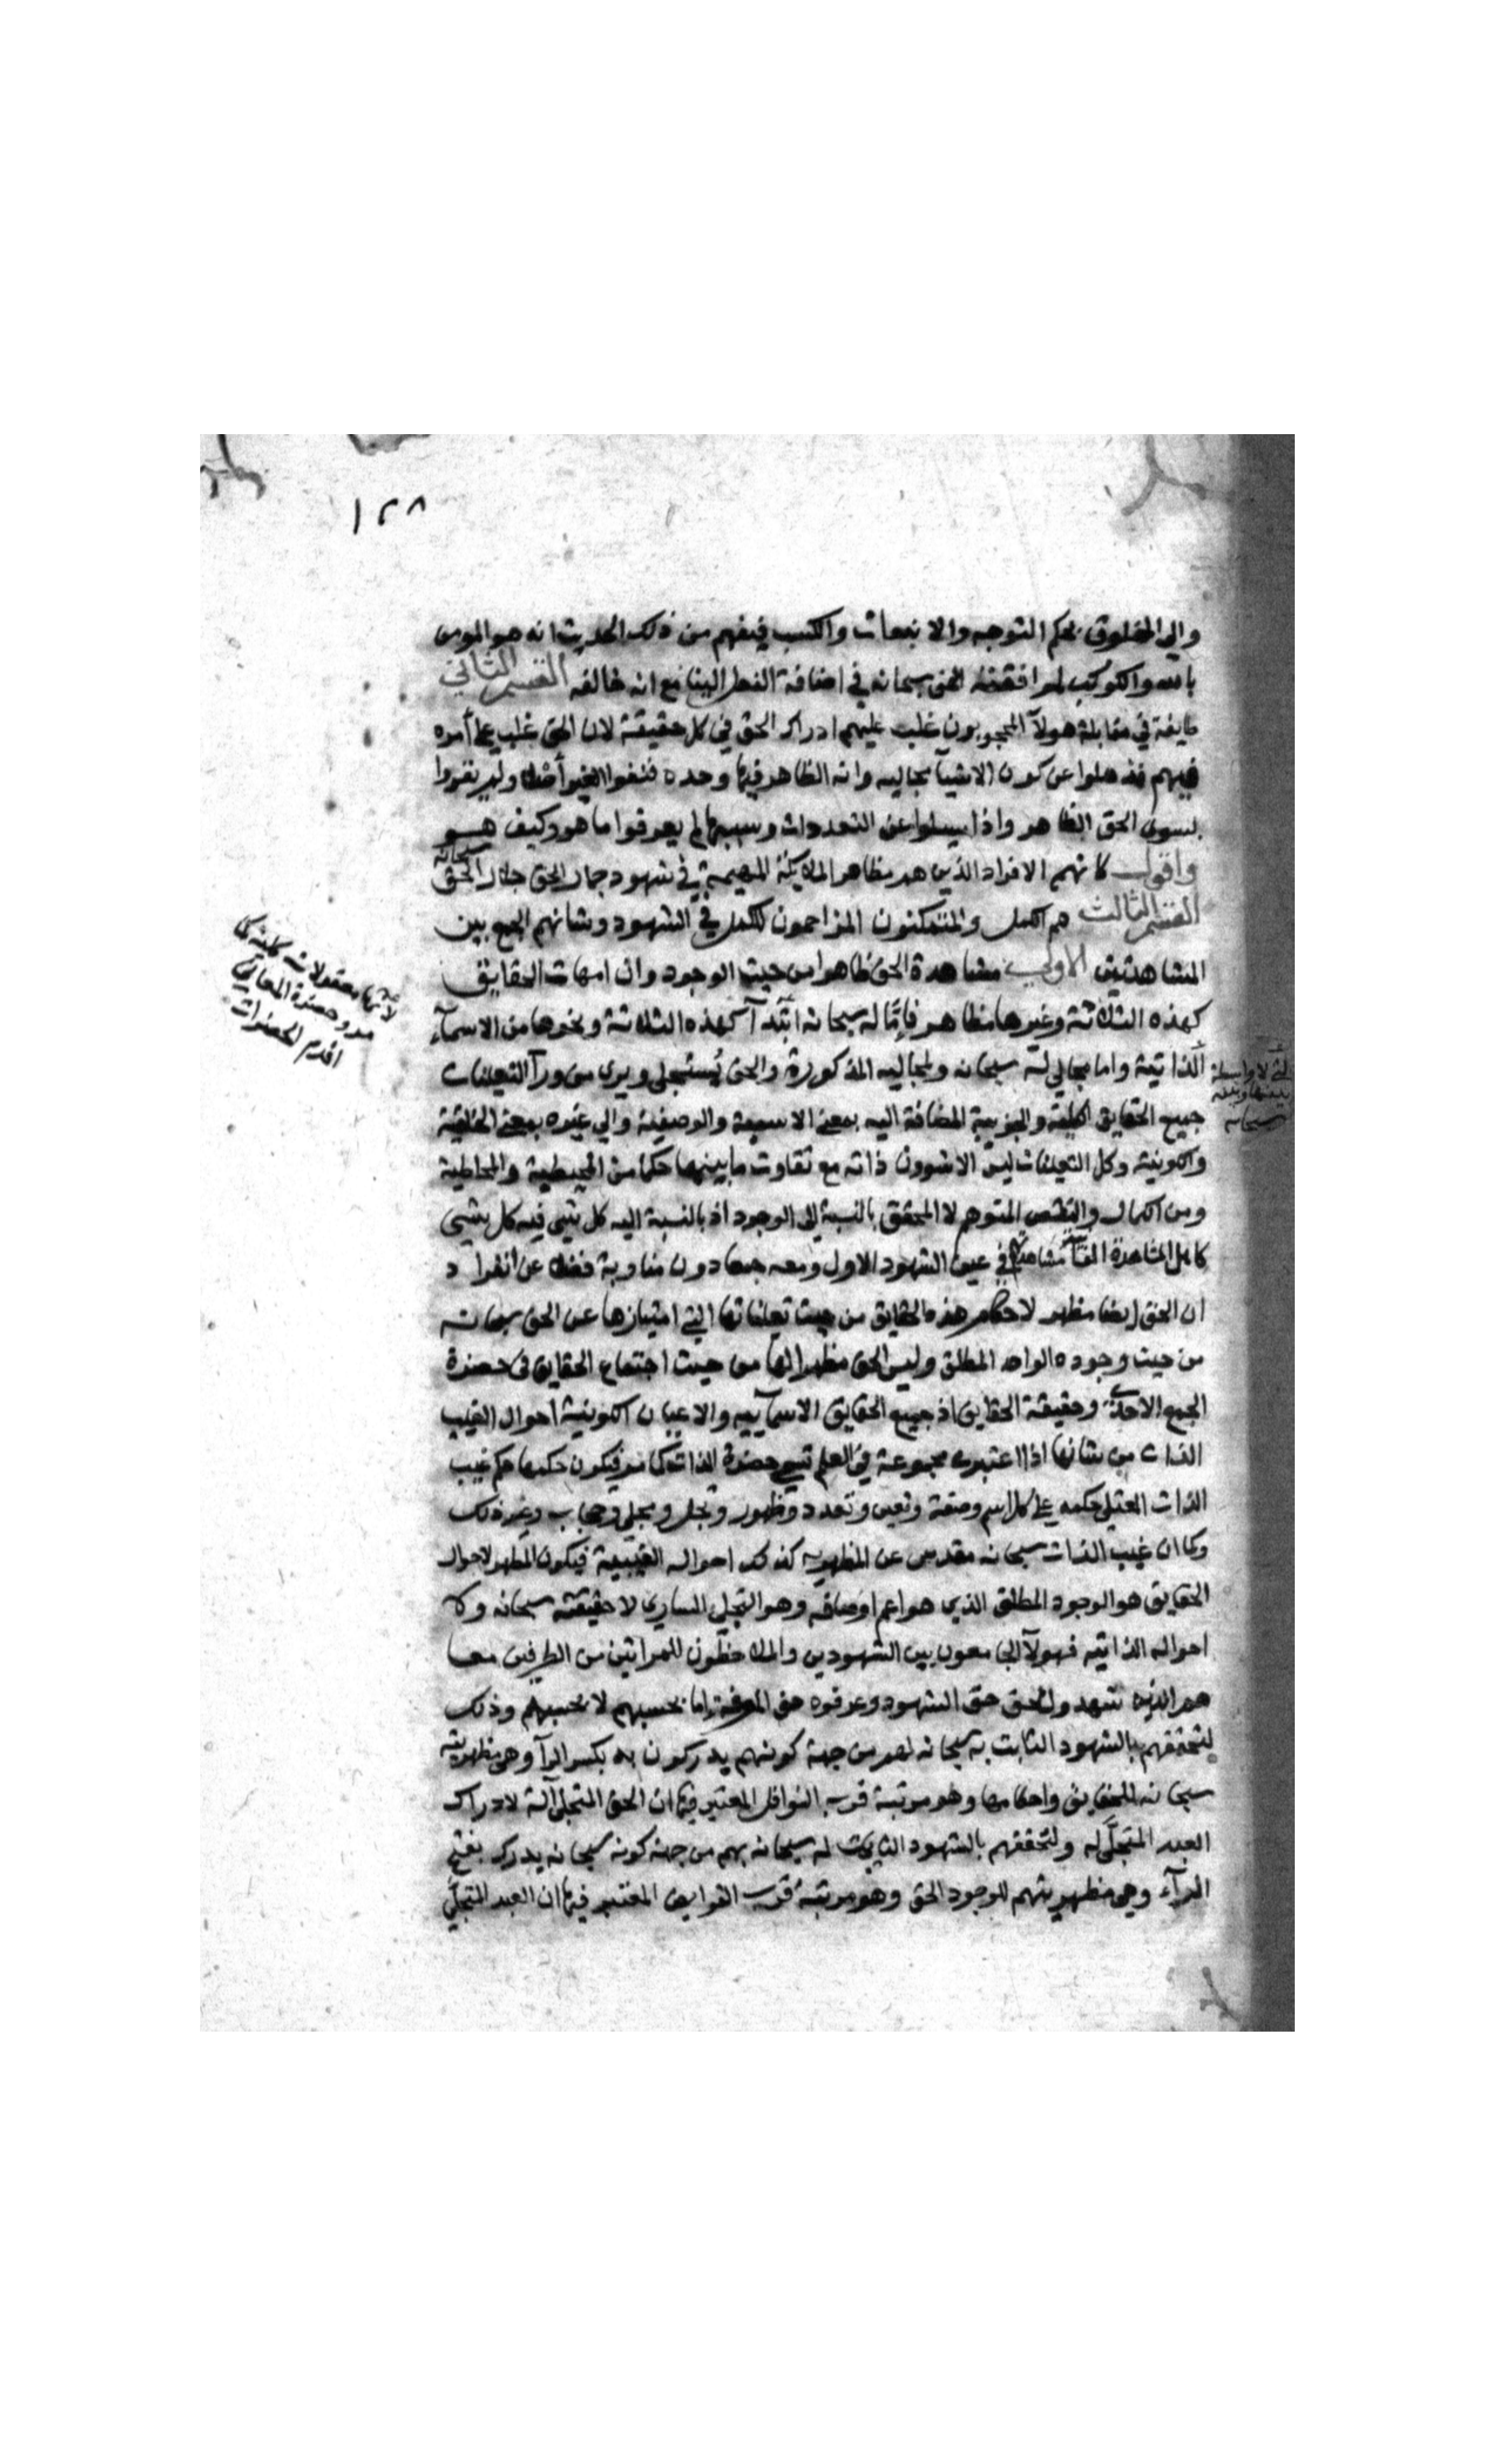 ١٢٨
والى المخلوق بحكم التوجه والانبعاث والكسب فيفهم من ذلك الحديث انه هو المومن
بالله والكوكب لموافقته الحق سبحانه في اضافة الفعل الينا مع انه خالقه القسم الثاني
طايفة في مقابلة هولآ المحجوبون غلب عليهم ادراك الحق في كل حقيقة لان الحق غلب على أمره
فيهم فذهلوا عن كون الاشيآ مجاليه وانه الظاهر فيها وحده فنفوا الغير أصلا ولم يقروا
بسوى الحق الظاهر واذا سيلوا عن التعددات وسببها لم يعرفوا ما هو وكيف هو
واقول كانهم الافراد الذين هم مظاهر الملايكة المهيمة في شهود جمال الحق جلال الحق سبحانه
القسم الثالث هم الكمل والمتمكنون المزاحمون للكمل في الشهود وشانهم الجمع بين
المشاهدتين الاولى مشاهدة الحق ظاهرا من حيث الوجود وان امهات الحقايق
كهذه الثلاثة وغيرها مظاهر فإمّا له سبحانه ابتدآ كهذه الثلاثة ونحوها من الاسمآء
الذاتية واما مجالي له سبحانه ولمجاليه المذكورة والحق يُستجلى ويرى من ورآ التعينات
جميع الحقايق الكلية والجزيية المضافة اليه بمعنى الاسمية والوصفية والى غيره بمعنى الخلقية
والكونية وكل التعينات ليس الا شوون ذاته مع تفاوت ما بينهما حكما من المحيطية والمحاطية
ومن الكمال والنقص المتوهم لا المحقق بالنسبة الى الوجود اذ بالنسبة اليه كل شي فيه كل شي
كامل المشاهدة الثانية مشاهدة في عين الشهود الاول ومعه جمعا دون مناوبة فضلا عن انفراد
ان الحق ايضا مظهر لاحكام هذه الحقايق من حيث تعيناتها التي امتيازها عن الحق سبحانه
من حيث وجوده الواحد المطلق وليس الحق مظهرا لها من حيث اجتماع الحقايق في حضرة
الجمع الاحدي وحقيقة الحقايق اذ جميع الحقايق الاسمآيية والاعيان الكونية احوال الغيب
الذات من شانها اذا اعتبرت مجموعة في العلم تتبع حضرة الذات كما مر فيكون حكمها حكم غيب
الذات العتلي حكمه على كل اسم وصفة وتعين وتعدد وظهور وتجل ومجلى وحجاب وغير ذلك
وكما ان غيب الذات سبحانه مقدس عن المظهرية كذلك احواله الغيبية فيكون المظهر لاحوال
الحقايق هو الوجود المطلق الذي هو اعم اوصافه وهو التجلي الساري لا حقيقته سبحانه ولا
احواله الذاتية فهولآ الجامعون بين الشهودين والملاحظون للمراتين من الطرفين معا
هم الذين شهدوا الحق حق الشهود وعرفوه حق المعرفة اما بحسبهم لا بحسبه وذلك
لتحققهم بالشهود الثابت به سبحانه لهم من جهة كونهم يدركون به بكسر الرآ وهي مظهريته
سبحانه للحقايق واحكامها وهو مرتبة قرب النوافل المعتبر فيها ان الحق المتجلي آلة لادراك
العبد المتجلَّى له ولتحققهم بالشهود الثابت له سبحانه بهم من جهة كونه سبحانه يدرك بفتح
الرآء وهي مظهريتهم للوجود الحق وهو مرتبة قرب الفرايض المعتبر فيها ان العبد المتجلَّى
لانها معقولات كلية كما
مر وحضرة المعاني
اقدم الحضرات
لا واسطة
بينها وبينه
سبحانه